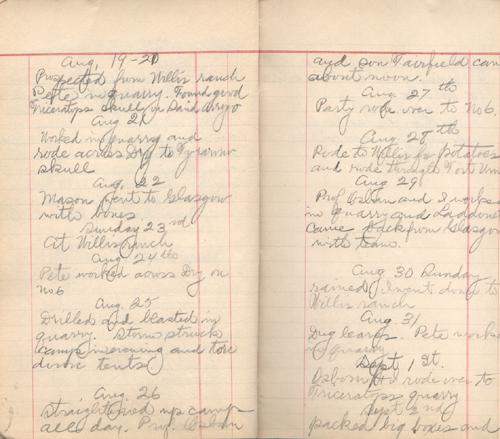 Aug. 19-20
Prospected from Willis ranch
Pete in quarry. Found good
Triceratops skull in Sand Arroyo
Aug 21
Worked in quarry and
rode across Dry to Tyranno
skull
Aug. 22
Mason went to Glasgow
with bones.
Sunday 23rd
At Willis ranch
Aug 24th
Pete worked across Dry on
No 6
Aug. 25
Drilled and blasted in
quarry. Storm struck
camp in evening and tore
down tents
Aug. 26
Straightened up camp
all day. Prof. Osborn
and son Fairfield came
about noon.
Aug 27th
Party rode over to No 6.
Aug. 28th
Rode to Willis for potatoes
and rode through
Aug 29
Prof Osborn and I worked
in quarry and
came back from Glasgow
with team.
Aug 30 Sunday
rained I went down to
Willis ranch
Aug. 31
Dug Pete worked
quarry
Sept 1st.
Osborn & I rode over to
Triceratops quarry
Sept 2nd
packed big boxes and